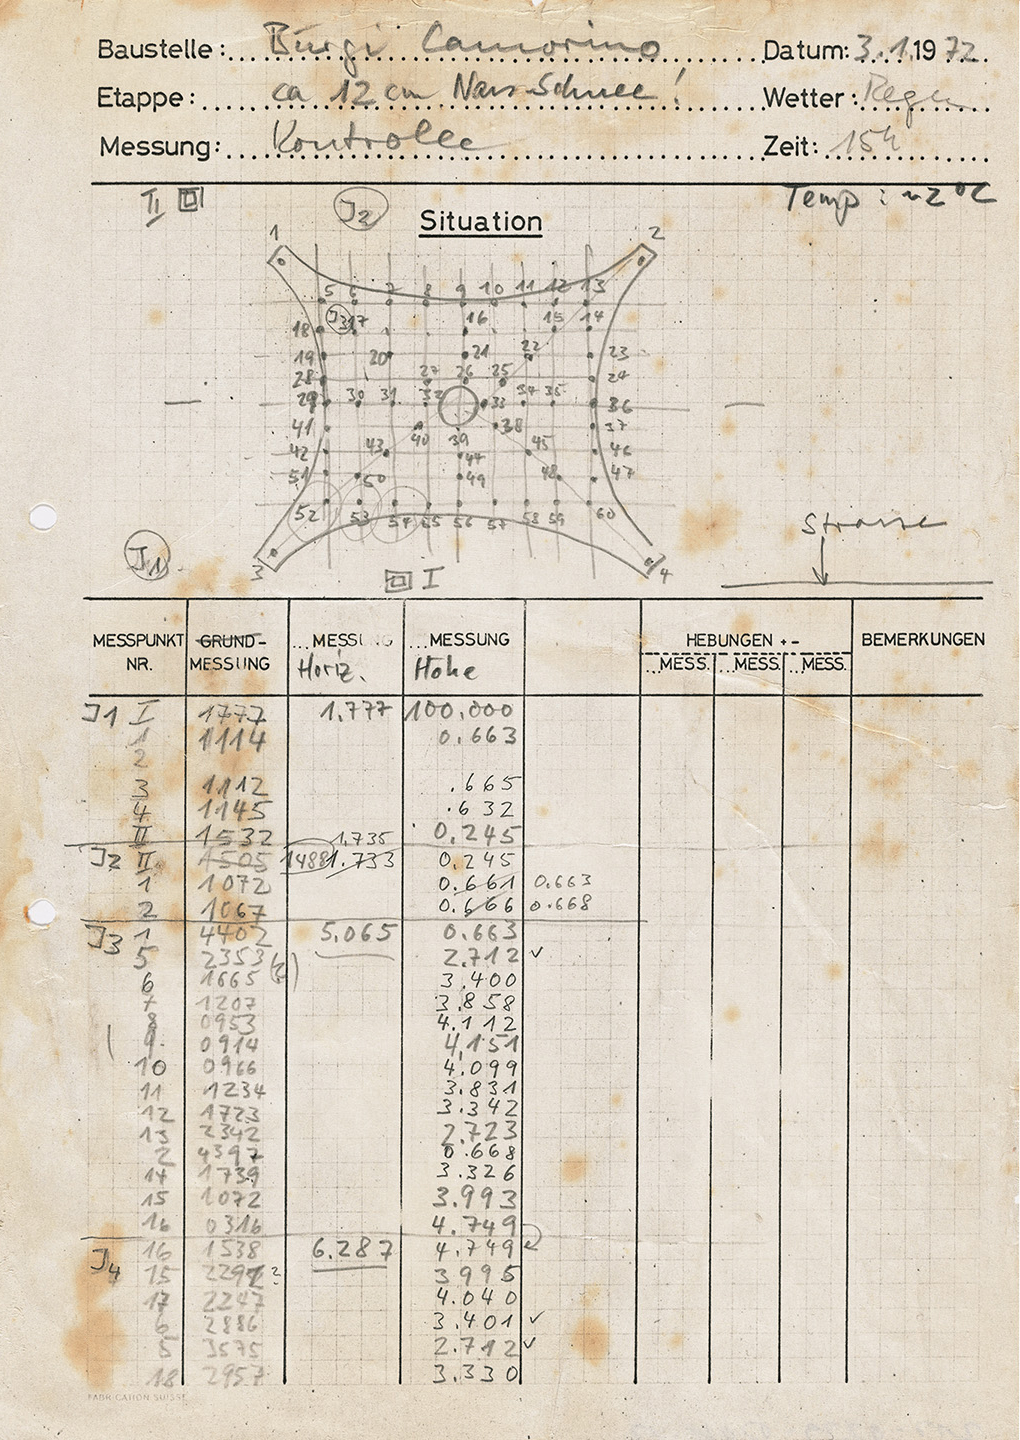 Baustelle: Bürgi Camorino Datum: 3.1.1972
Etappe: ca 12 cm Nass-Schnee! Wetter: Regen
Messung: Kontrolle Zeit: 15h
Temp: ~2°C
II J2 Situation
1 2
5 6 7 8 9 10 11 12 13
J3 17 16 15 14
18
19 20 21 22 23
28 27 26 25 24
29 30 31 32 33 34 35 36
41 40 39 38 37
42 43 44 45 46
51 50 49 48 47
52 53 54 55 56 57 58 59 60
Strasse
J1 3 I 4
MESSPUNKT NR. GRUND-MESSUNG ...MESSUNG Horiz. ...MESSUNG Höhe HEBUNGEN + - BEMERKUNGEN
...MESS. ...MESS. ...MESS.
J1 I 1777 1.777 100.000
1 1114 0.663
2
3 1112 .665
4 1145 .632
II 1532 1.735 0.245
J2 II 1505 1488 1.733 0.245
1 1072 0.661 0.663
2 1067 0.666 0.668
J3 1 4402 5.065 0.663
5 2353 2.712 ✓
6 1665 3.400
7 1207 3.858
8 0953 4.112
9 0914 4,151
10 0966 4.099
11 1234 3.831
12 1723 3.342
13 2342 2.723
2 4397 0.668
14 1739 3.326
15 1072 3.993
16 0316 4.749
J4 16 1538 6.287 4.749
15 2292? 3995
17 2247 4.040
6 2886 3.401 ✓
5 3575 2.712 ✓
18 2957 3.330
FABRICATION SUISSE